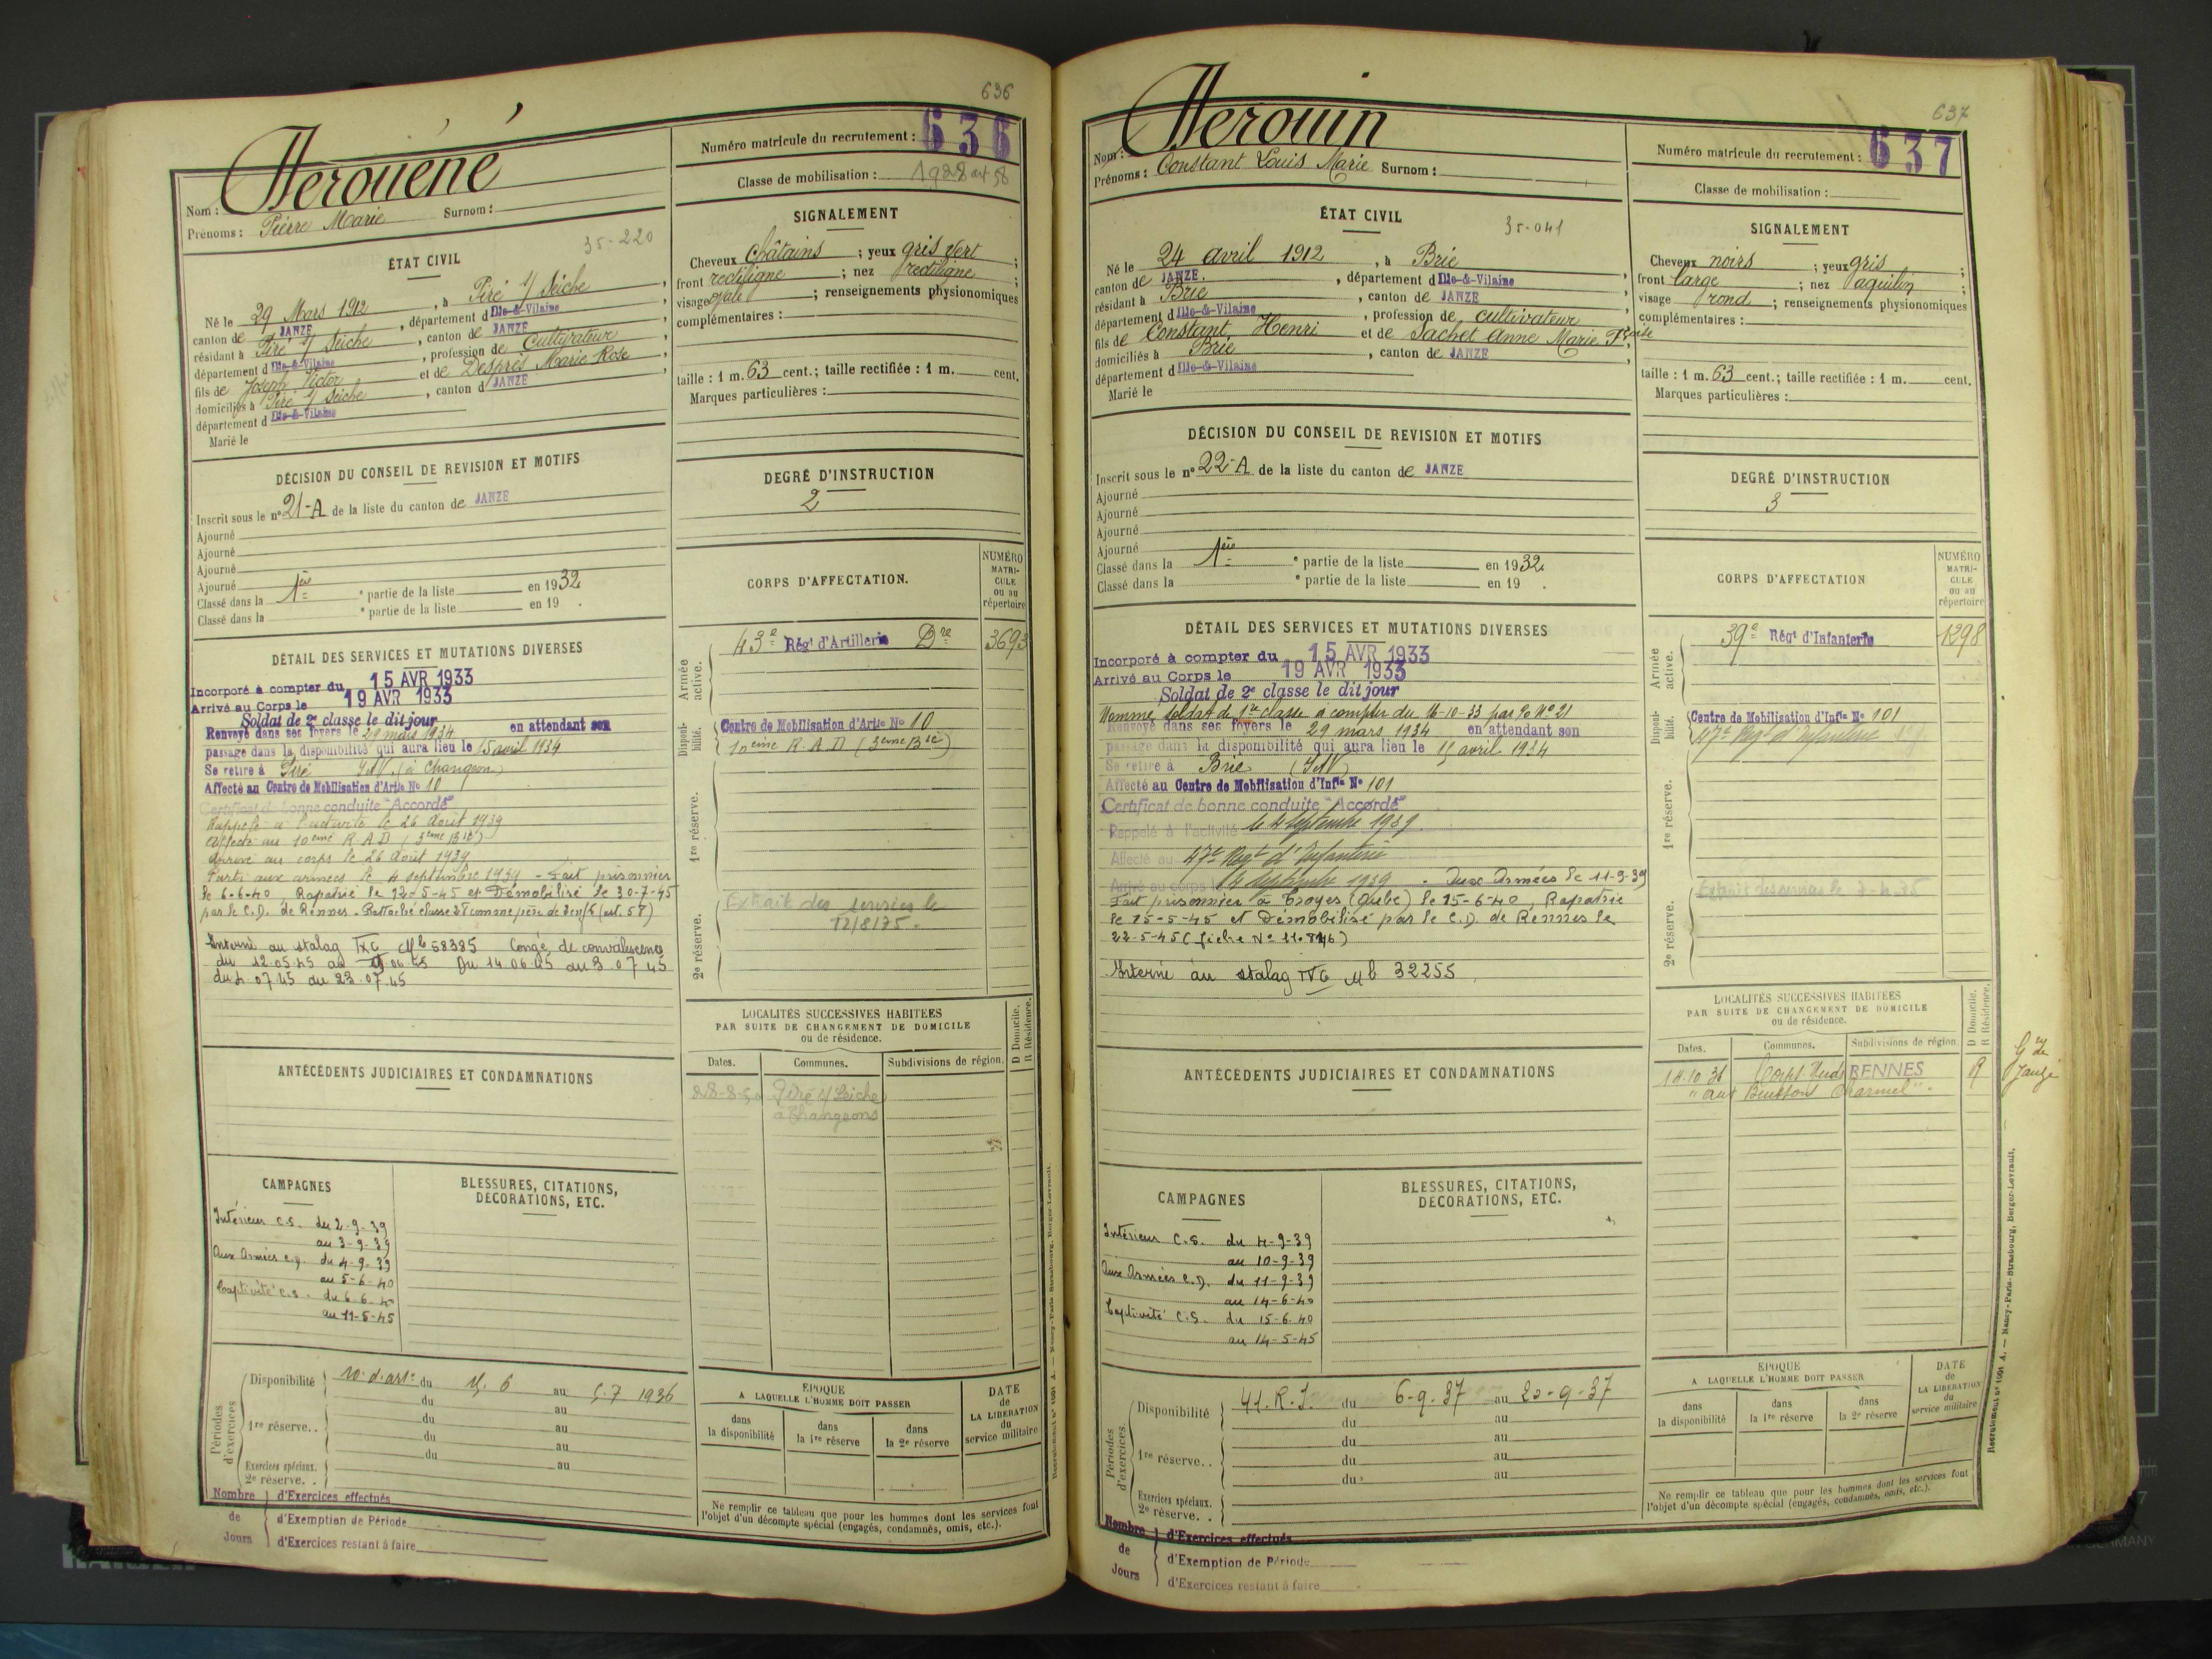 636
Herouené
Nom :
Prénoms : Pierre Marie Surnom :
Numéro matricule du recrutement : 636
Classe de mobilisation : 1928 art 58
35-220
ÉTAT CIVIL
Né le 29 Mars 1912, à Piré s/ Seiche,
canton de JANZE, département d Ille-&-Vilaine,
résidant à Piré s/ Seiche, canton de JANZE,
département d Ille-&-Vilaine, profession de Cultivateur
fils de Joseph Victor et de Desprès Marie Rose,
domiciliés à Piré s/ Seiche, canton d JANZE,
département d Ille-&-Vilaine
Marié le
SIGNALEMENT
Cheveux châtains ; yeux gris vert ;
front rectiligne ; nez rectiligne ;
visage ovale ; renseignements physionomiques
complémentaires :
taille : 1 m. 63 cent.; taille rectifiée : 1 m. cent.
Marques particulières :
DÉCISION DU CONSEIL DE REVISION ET MOTIFS
Inscrit sous le n° 21-A de la liste du canton de JANZE
Ajourné
Ajourné
Ajourné
Ajourné
Classé dans la 1ère e partie de la liste en 1932
Classé dans la e partie de la liste en 19 .
DEGRÉ D'INSTRUCTION
2
DÉTAIL DES SERVICES ET MUTATIONS DIVERSES
Incorporé à compter du 15 AVR 1933
Arrivé au Corps le 19 AVR 1933
Soldat de 2e classe le dit jour
Renvoyé dans ses foyers le 29 mars 1934 en attendant son
passage dans la disponibilité qui aura lieu le 15 avril 1934
Se retire à Piré I&V. (à Changeon)
Affecté au Centre de Mobilisation d'Artie No 10
Certificat de bonne conduite "Accordé"
Rappelé à l'activité le 26 Août 1939
Affecté au 10ème R.A.D (3ème Bie)
Arrivé au corps le 26 Août 1939
Parti aux armées le 4 septembre 1939 - Fait prisonnier
le 6-6-40 Rapatrié le 12-5-45 et Démobilisé le 30-7-45
par le C.D. de Rennes. Rattaché classe 28 comme père de (art. 58)
Interné au stalag IXC Mle 58385 Congé de convalescence
du 12.05.45 au .06.45 Du 14.06.45 au 3.07.45
du 4.07.45 au 23.07.45
CORPS D'AFFECTATION.
NUMÉRO MATRICULE ou au répertoire
Armée active.
43e Régt d'Artillerie Dre 3693
Disponibilité.
Centre de Mobilisation d'Artie No 10
10eme R.A.D (3eme Bie)
1re réserve.
2e réserve.
Extrait des services le
12/8/75.
ANTÉCÉDENTS JUDICIAIRES ET CONDAMNATIONS
LOCALITÉS SUCCESSIVES HABITÉES
PAR SUITE DE CHANGEMENT DE DOMICILE
ou de résidence.
D Domicile. R Résidence.
Dates. Communes. Subdivisions de région.
28-8-50 Piré s/ Seiche
à Changeons
CAMPAGNES
Intérieur C.S. du 2-9-39
au 3-9-39
Aux Armées C.D. du 4-9-39
au 5-6-40
Captivité C.S. du 6-6-40
au 11-5-45
BLESSURES, CITATIONS,
DÉCORATIONS, ETC.
Périodes d'exercices
Disponibilité du 15. 6 au 5.7 1936
du au
1re réserve. . du au
du au
du au
Exercices spéciaux. au
2e réserve. .
Nombre de Jours
d'Exercices effectués
d'Exemption de Période
d'Exercices restant à faire
ÉPOQUE
A LAQUELLE L'HOMME DOIT PASSER
dans la disponibilité
dans la 1re réserve
dans la 2e réserve
DATE de LA LIBÉRATION du service militaire
Ne remplir ce tableau que pour les hommes dont les services font
l'objet d'un décompte spécial (engagés, condamnés, omis, etc.).
Recrutement n° 1001 A. — Nancy-Paris-Strasbourg, Berger-Levrault.
637
Herouin
Nom :
Prénoms : Constant Louis Marie Surnom :
Numéro matricule du recrutement : 637
Classe de mobilisation :
35-041
ÉTAT CIVIL
Né le 24 avril 1912, à Brie
canton de JANZE, département d Ille-&-Vilaine
résidant à Brie, canton de JANZE
département d Ille-&-Vilaine, profession de cultivateur
fils de Constant Henri et de Sachet Anne Marie Fçoise
domiciliés à Brie, canton de JANZE
département d Ille-&-Vilaine
Marié le
SIGNALEMENT
Cheveux noirs ; yeux gris ;
front large ; nez aquilin ;
visage rond ; renseignements physionomiques
complémentaires :
taille : 1 m. 63 cent.; taille rectifiée : 1 m. cent.
Marques particulières :
DÉCISION DU CONSEIL DE REVISION ET MOTIFS
Inscrit sous le n° 22-A de la liste du canton de JANZE
Ajourné
Ajourné
Ajourné
Ajourné
Classé dans la 1ère e partie de la liste en 1932.
Classé dans la e partie de la liste en 19 .
DEGRÉ D'INSTRUCTION
3
DÉTAIL DES SERVICES ET MUTATIONS DIVERSES
Incorporé à compter du 15 AVR 1933
Arrivé au Corps le 19 AVR 1933
Soldat de 2e classe le dit jour
Nommé soldat de 1re classe à compter du 16-10-33 par No 21
Renvoyé dans ses foyers le 29 mars 1934 en attendant son
passage dans la disponibilité qui aura lieu le 15 avril 1934
Se retire à Brie (I&V)
Affecté au Centre de Mobilisation d'Infie No 101
Certificat de bonne conduite "Accordé"
Rappelé à l'activité le 4 Septembre 1939.
Affecté au 47e Regt d'Infanterie
Arrivé au corps le 4 Septembre 1939 - Aux Armées le 11-9-39
Fait prisonnier à Troyes (Aube) le 15-6-40, Rapatrié
le 15-5-45 et Démobilisé par le C.D. de Rennes le
22-5-45 (fiche No 11.846)
Interné au stalag IVG Mle 32255
CORPS D'AFFECTATION
NUMÉRO MATRICULE ou au répertoire
Armée active.
39e Régt d'Infanterie 1298
Disponibilité.
Centre de Mobilisation d'Infie No 101
47e Regt d'Infanterie
1re réserve.
2e réserve.
Extrait des services le
ANTÉCÉDENTS JUDICIAIRES ET CONDAMNATIONS
LOCALITÉS SUCCESSIVES HABITÉES
PAR SUITE DE CHANGEMENT DE DOMICILE
ou de résidence.
D Domicile. R Résidence.
Dates. Communes. Subdivisions de région.
Corps Nuds RENNES R
"aux Buissons Charmel".
CAMPAGNES
Intérieur C.S. du 4-9-39
au 10-9-39
Aux Armées C.D. du 11-9-39
au 14-6-40
Captivité C.S. du 15-6-40
au 14-5-45
BLESSURES, CITATIONS,
DÉCORATIONS, ETC.
Périodes d'exercices
Disponibilité 41. R. I du 6-9-37 au 20-9-37
du au
1re réserve. . du au
du au
du au
Exercices spéciaux.
2e réserve. .
Nombre de Jours
d'Exercices effectués
d'Exemption de Période
d'Exercices restant à faire
ÉPOQUE
A LAQUELLE L'HOMME DOIT PASSER
dans la disponibilité
dans la 1re réserve
dans la 2e réserve
DATE de LA LIBÉRATION du service militaire
Ne remplir ce tableau que pour les hommes dont les services font
l'objet d'un décompte spécial (engagés, condamnés, omis, etc.).
Recrutement n° 1001 A. — Nancy-Paris-Strasbourg, Berger-Levrault.